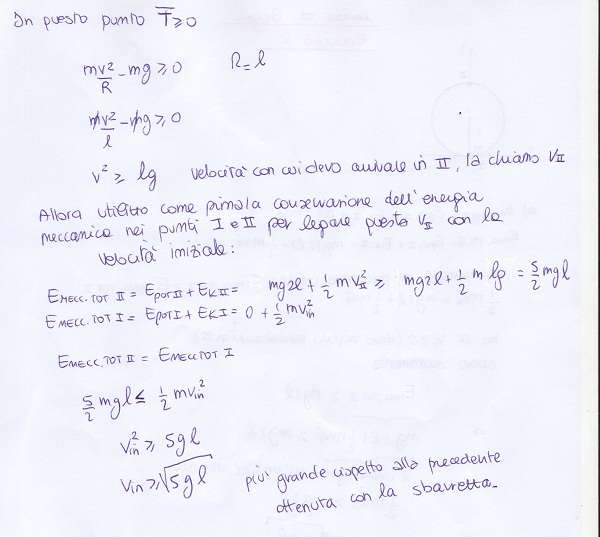 In questo punto T≥0
mv²/R - mg ≥ 0 R = l
mv²/l - mg ≥ 0
v² ≥ lg velocità con cui devo arrivare in II, la chiamo VII
Allora utilizzo come prima la conservazione dell'energia
meccanica nei punti I e II per legare questo VII con la
velocità iniziale:
EMECC.TOT II = EPOT II + EK II = mg2l + 1/2 mVII² ≥ mg2l + 1/2 m lg = 5/2 mgl
EMECC.TOT I = EPOT I + EK I = 0 + 1/2 mvin²
EMECC.TOT II = EMECC TOT I
5/2 mgl ≤ 1/2 mvin²
vin² ≥ 5gl
vin ≥ √5gl più grande rispetto alla precedente
ottenuta con la sbarretta.